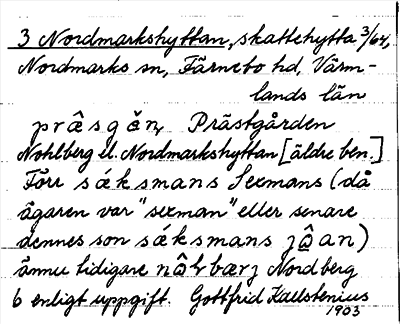 3 Nordmarkshyttan, skattehytta 3/64,
Nordmarks sn, Färnebo hd, Värm-
lands län
prâsgǎɳ, Prästgården
Nohlberg el. Nordmarkshyttan [äldre ben.]
Förr sǽksmans Sexmans (då
ägaren var "sexman" eller senare
dennes son sǽksmans jâ̱an)
ännu tidigare nôɽbærj Nordberg
b enligt uppgift. Gottfrid Kallstenius
1903